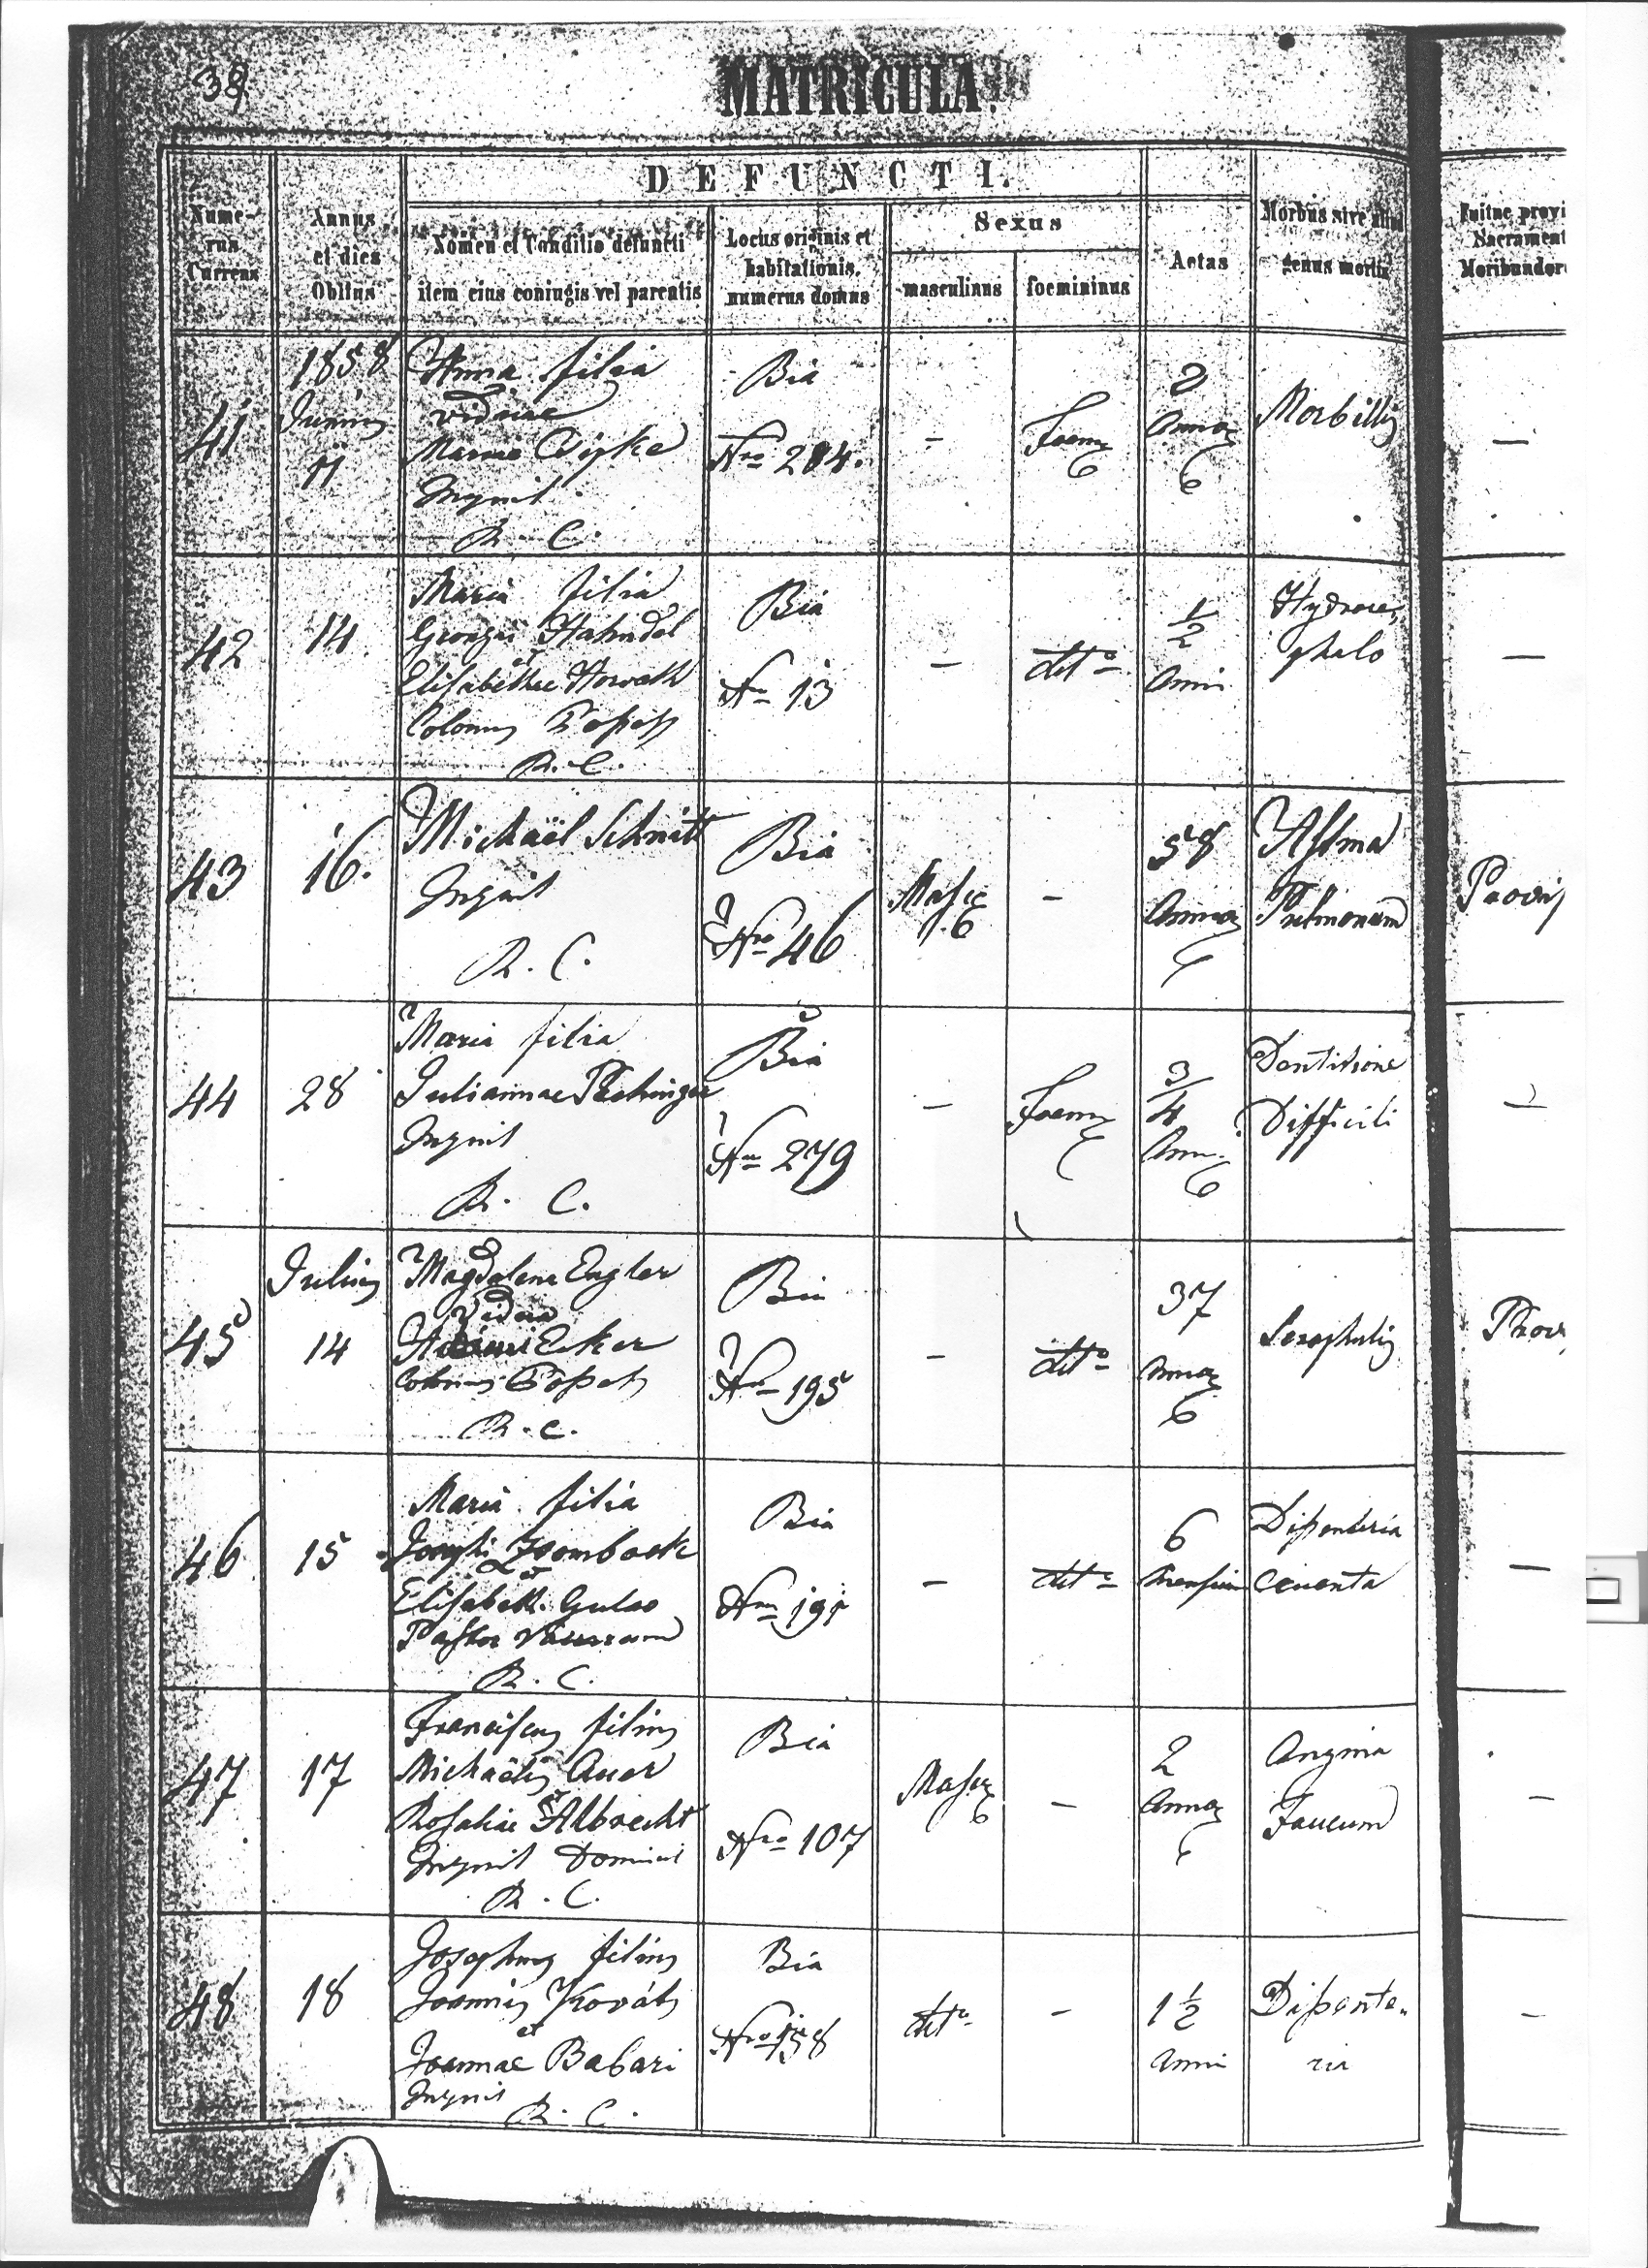 39
MATRICULA
DEFUNCTI.
Nume-
rus
Currens
Annus
et dies
Obitus
Nomen et Conditio defuncti
item eius coniugis vel parentis
Locus originis et
habitationis,
numerus domus
Sexus
masculinus
foemininus
Aetas
Morbus sive aliud
genus mortis
Fuitne provi
Sacrament
Moribundor
41
1858
Junius
11
Anna filia
viduae
Mariae
Inquil
R. C.
Bia
Nro 284.
-
Foem
2
Annor
Morbillis
-
42
14
Maria filia
Georgii Hahndel
et
Elisabethae Horvath
Colonus
R. C.
Bia
Nro 13
-
detto
1/2
Anni
Hydroce-
phalo
-
43
16.
Michaël Schmitt
Inquil
R. C.
Bia
Nro 46
Masc
-
58
Annor
Astma
Pulmonum
Provis
44
28
Maria filia
Juliannae
Inquil
R. C.
Bia
Nro 279
-
Foem
3/4
Ann.
Dentitione
Difficili
-
45
Julius
14
Magdalena Engler
vidua
Ecker
Colonus
R. C.
Bia
Nro 195
-
detto
37
Annor
Scrophulis
Prov
46
15
Maria filia
Josephi Zsombock
et
Elisabeth. Gulas
Pastor Vaccarum
R. C.
Bia
Nro 191
-
detto
6
Mensium
Dissenteria
Cruenta
-
47
17
Franciscus filius
Michaëlis Auer
et
Rosaliae Albrecht
Inquil Domini
R. C.
Bia
Nro 107
Masc
-
2
Annor
Angina
Faucum
-
48
18
Josephus filius
Joannis Kováts
et
Joannae Babari
Inquil
R. C.
Bia
Nro 158
detto
-
1 1/2
Anni
Dissente-
ria
-